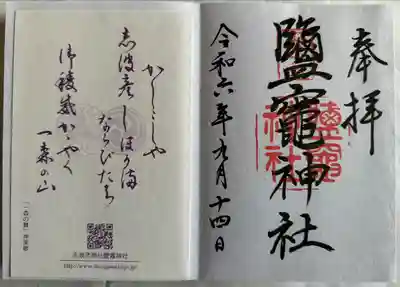 奉拝
鹽竈神社
鹽竈神社
令和六年九月十四日
かしこしや
志波彦しほがま
ならびたち
御稜威かゞやく
一森の山
「一森の舞」神楽歌
志波彦神社鹽竈神社
http://www.shiogamajinja.jp/